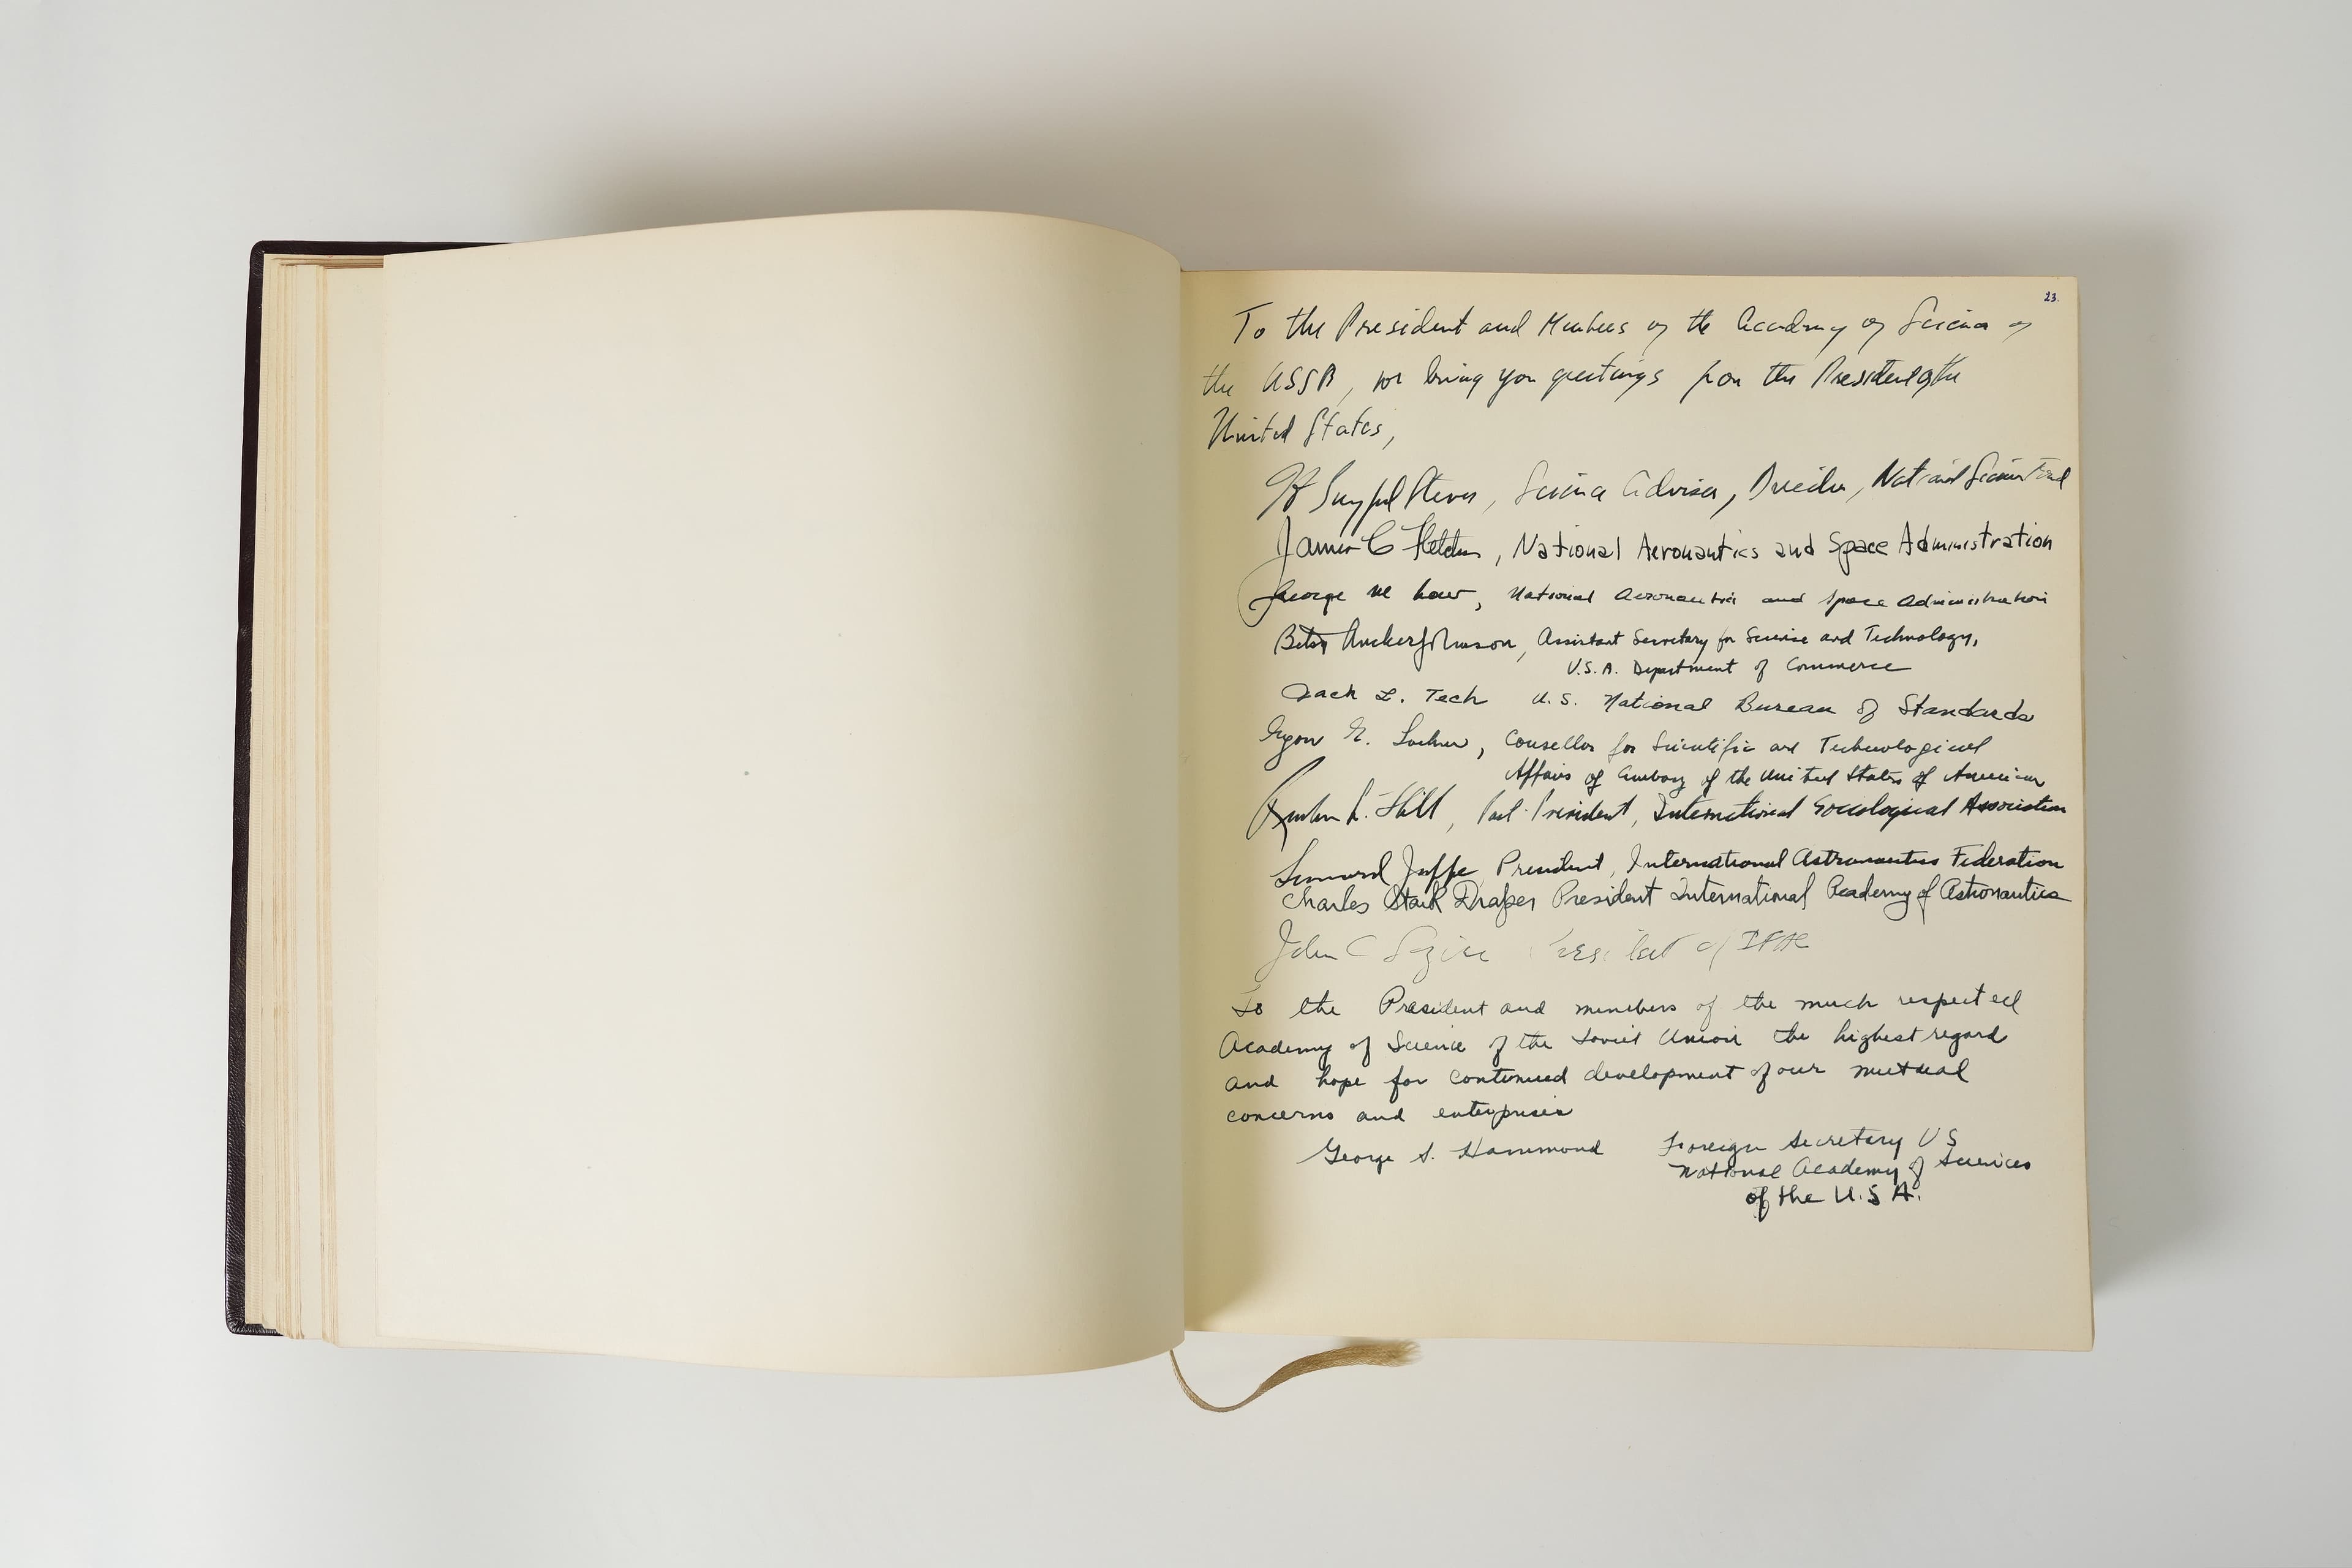 23.
To the President and Members of the Academy of Science of
the USSR, we bring you greetings from the President of the
United States,
H Guyford Stever, Science Adviser, Director, National Science Found
James C Fletcher, National Aeronautics and Space Administration
George M Low, National Aeronautics and Space Administration
Betsy Ancker-Johnson, Assistant Secretary for Science and Technology,
U.S.A. Department of Commerce
Jack L. Tech U.S. National Bureau of Standards
Egon E. Loebner, Counsellor for Scientific and Technological
Affairs of Embassy of the United States of America
Reuben L. Hill, Past President, International Sociological Association
Leonard Jaffe President, International Astronautics Federation
Charles Stark Draper President International Academy of Astronautics
John C Lozier President of IFAC
To the President and members of the much respected
Academy of Science of the Soviet Union the highest regard
and hope for continued development of our mutual
concerns and enterprises
George S. Hammond Foreign Secretary US
National Academy of Sciences
of the U.S A.